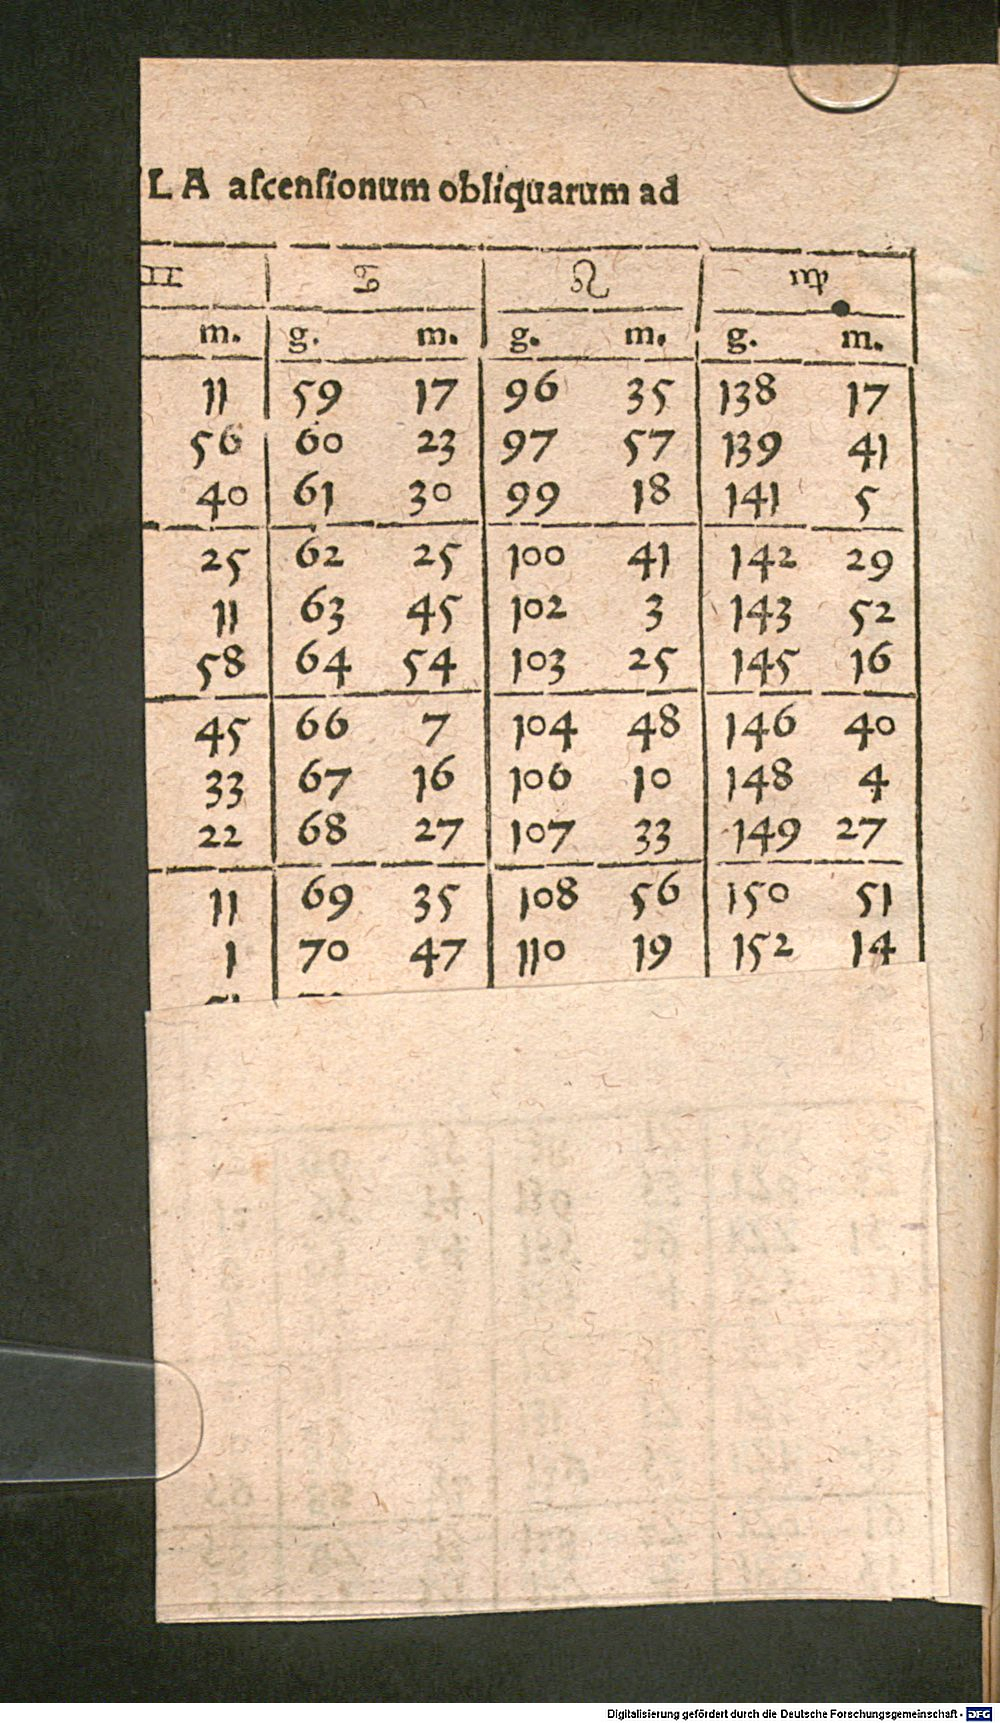 LA ascensionum obliquarum ad
♊ ♋ ♌ ♍
m. g. m. g. m. g. m.
11 59 17 96 35 138 17
56 60 23 97 57 139 41
40 61 30 99 18 141 5
25 62 25 100 41 142 29
11 63 45 102 3 143 52
58 64 54 103 25 145 16
45 66 7 104 48 146 40
33 67 16 106 10 148 4
22 68 27 107 33 149 27
11 69 35 108 56 150 51
1 70 47 110 19 152 14
Digitalisierung gefördert durch die Deutsche Forschungsgemeinschaft - DFG